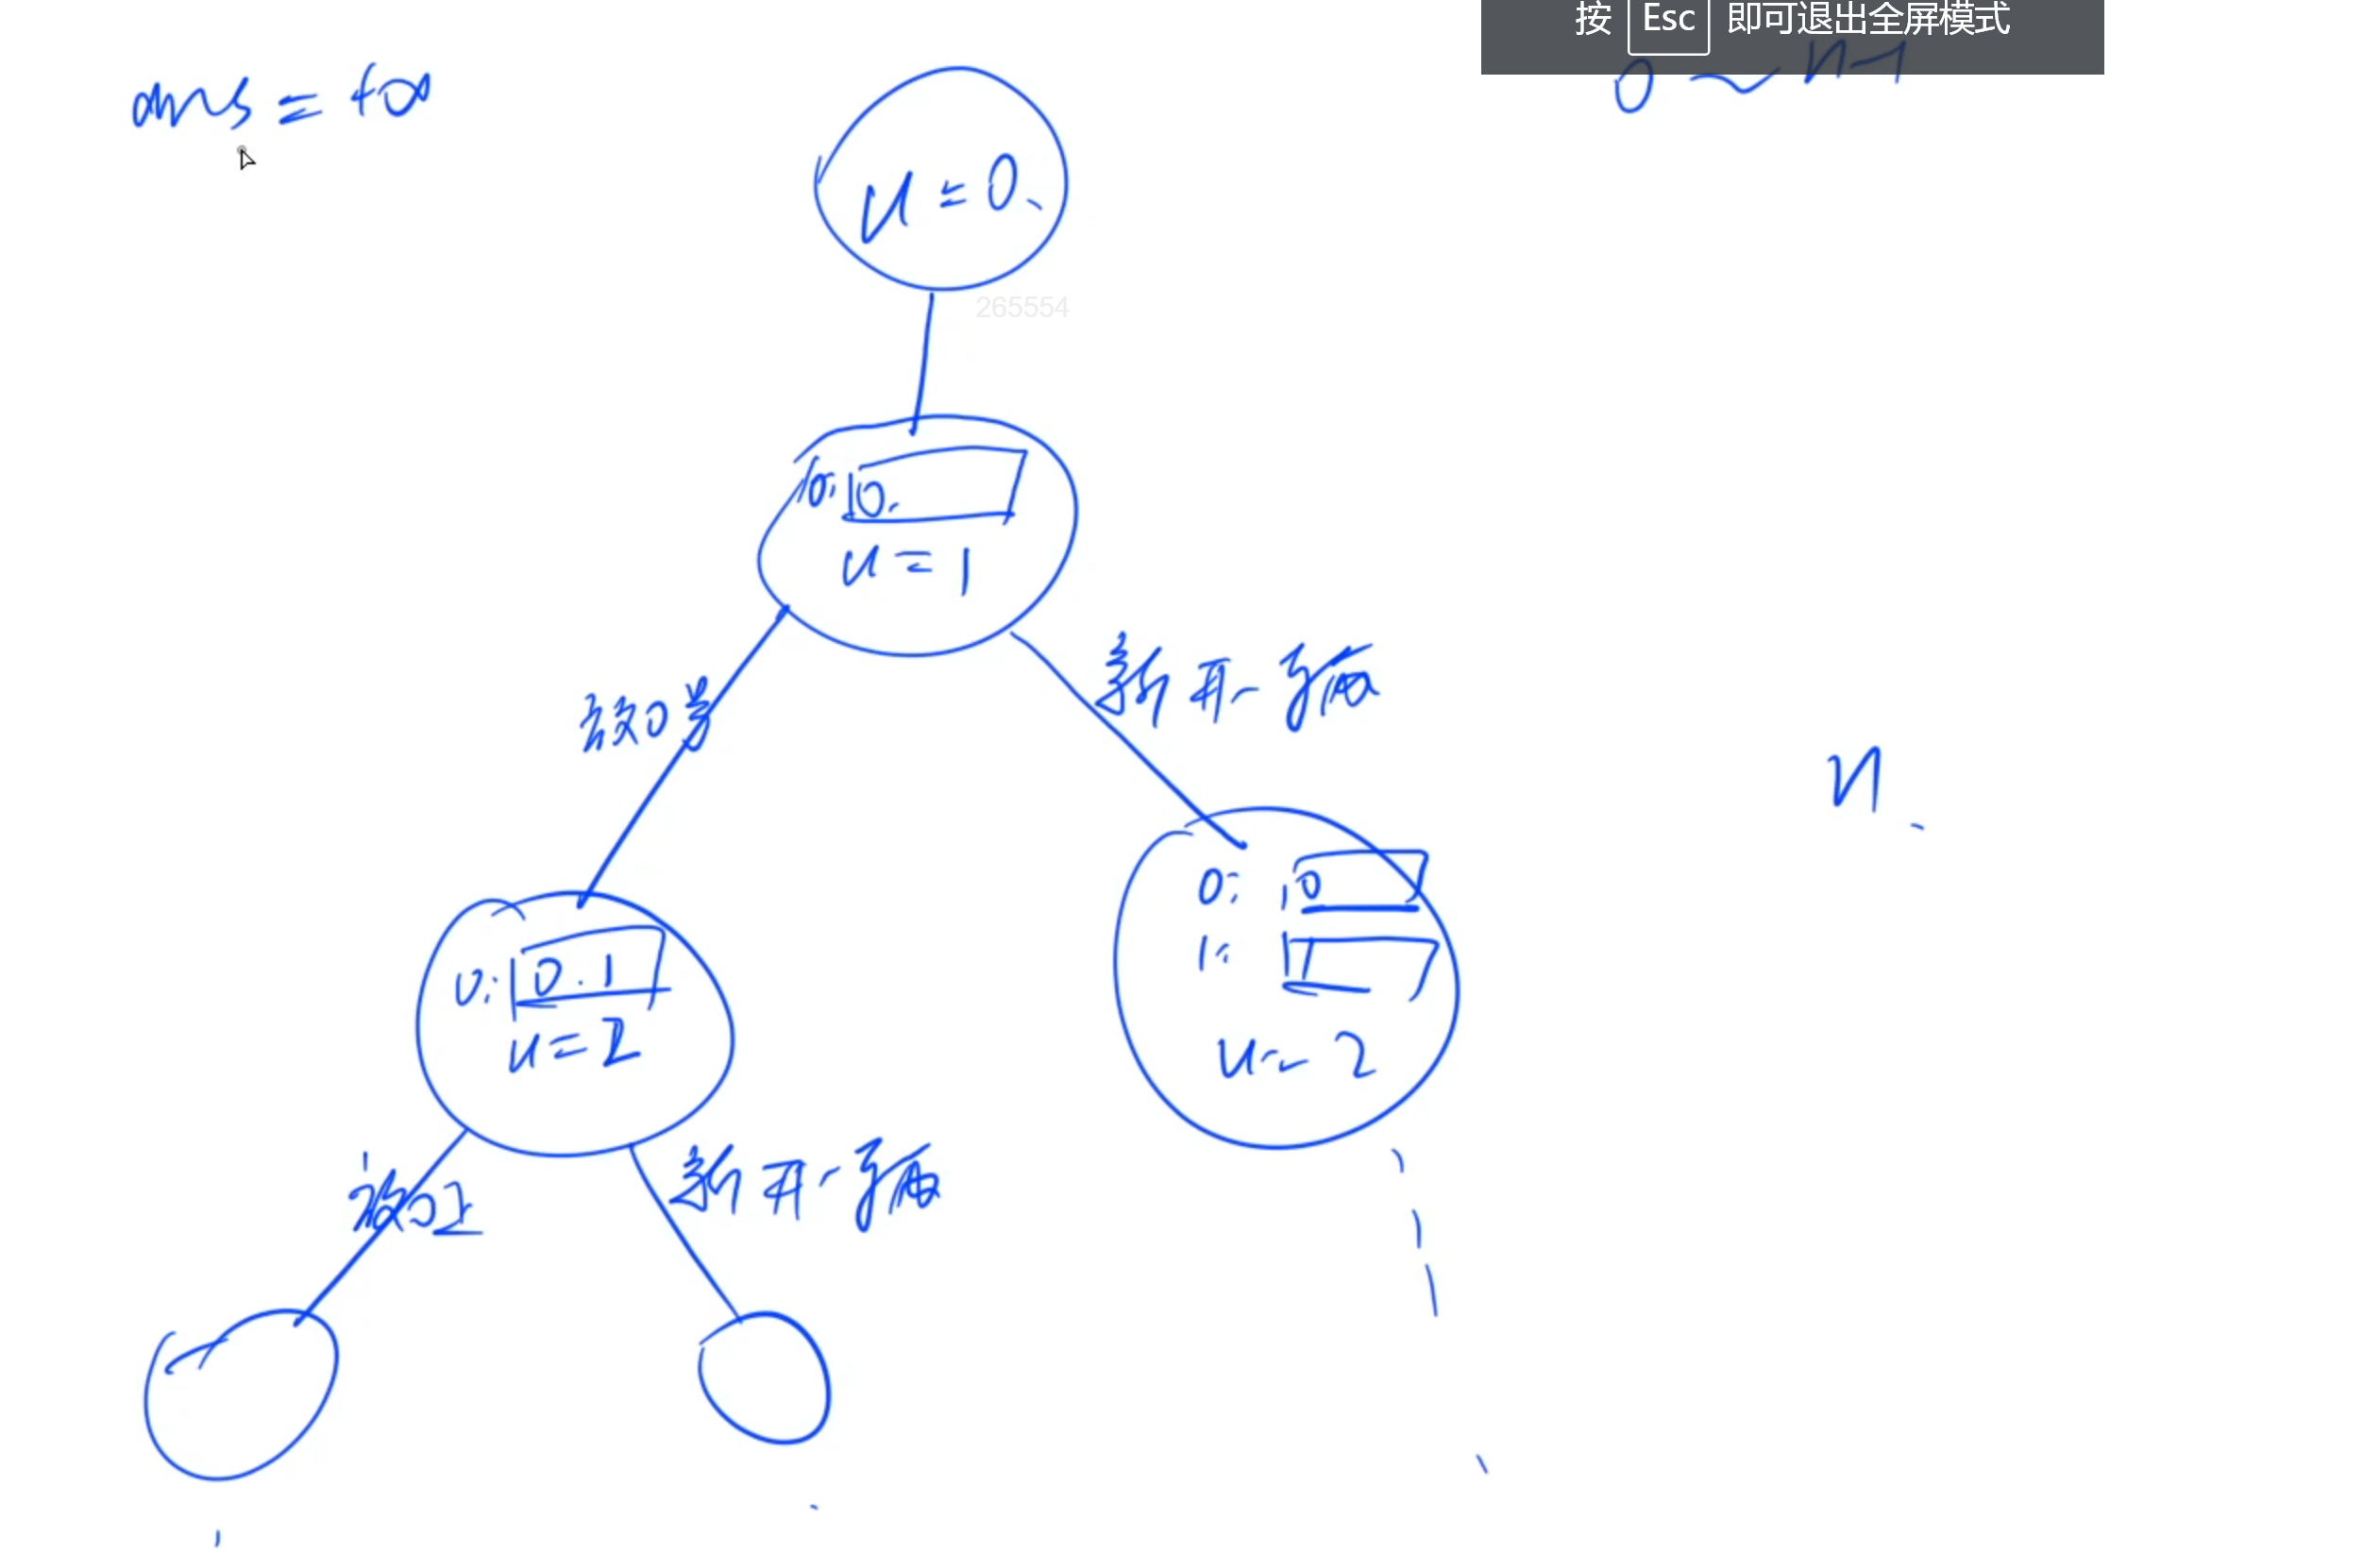 按 Esc 即可退出全屏模式
ans = +∞
0 ~ n-1
u = 0
265554
0: 0
u = 1
放0号
新开一子
0: 0 1
u = 2
0: 0
1: 1
u = 2
n
新开一子